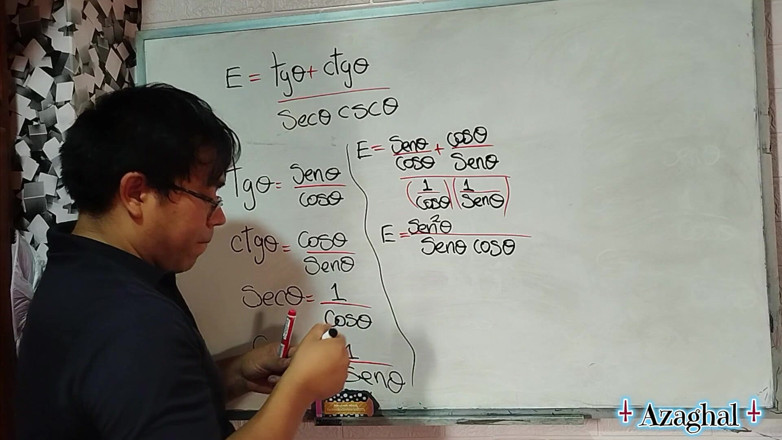 E = tgθ + ctgθ
secθ cscθ
tgθ = senθ
cosθ
ctgθ = cosθ
senθ
secθ = 1
cosθ
1
senθ
E = senθ + cosθ
cosθ senθ
(1)(1)
cosθ senθ
E = sen²θ
senθ cosθ
Azaghal